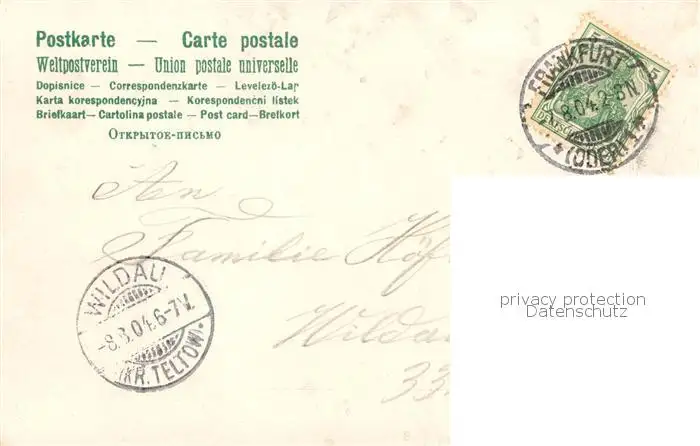 Postkarte — Carte postale
Weltpostverein — Union postale universelle
Dopisnice — Correspondenzkarte — Levelező-Lap
Karta korespondencyjna — Korespondenční lístek
Briefkaart — Cartolina postale — Post card — Brefkort
Открытое-письмо
FRANKFURT
8.04.2-3N
*(ODER)1*
5 5
An
Familie Höf
Wildau
33
WILDAU
-8.3.04.6-7V.
(KR. TELTOW)
privacy protection
Datenschutz